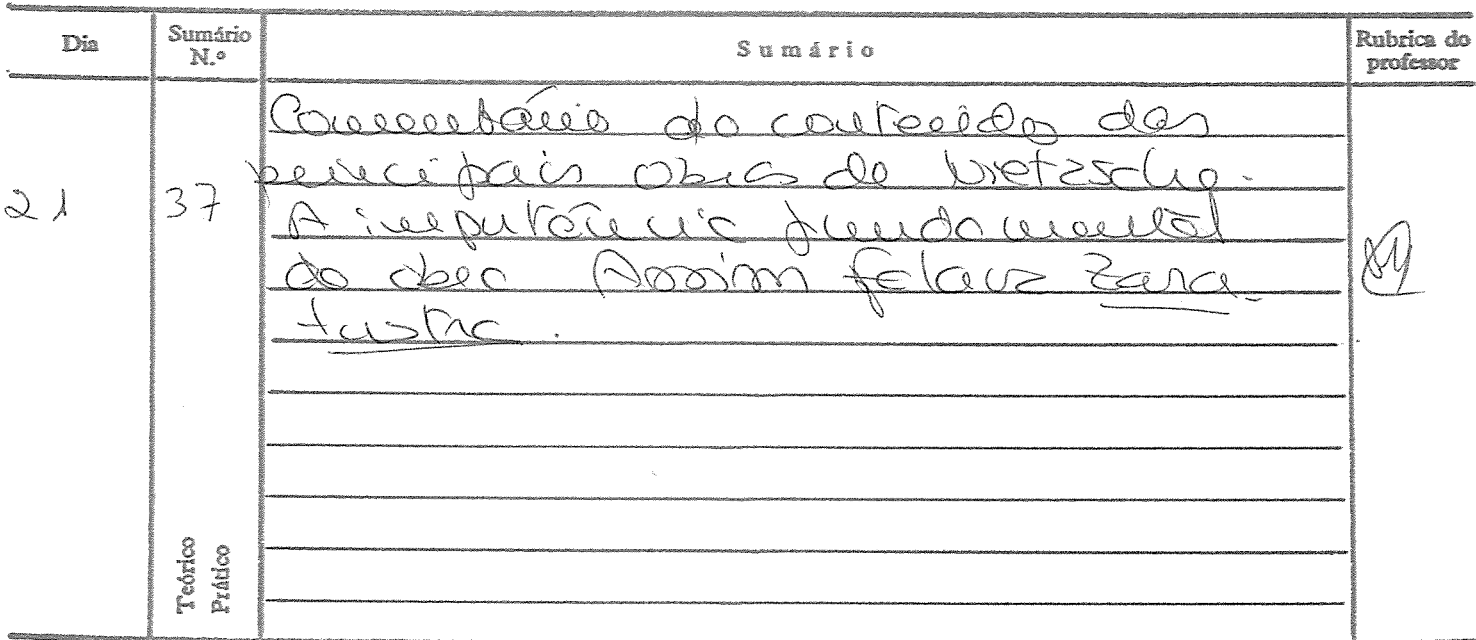 Dia Sumário N.º Sumário Rubrica do professor
Comentário do conteúdo das
principais obras de Nietzsche.
21 37 A importância fundamental
da obra Assim falava Zara-
tustra.
Teórico
Prático